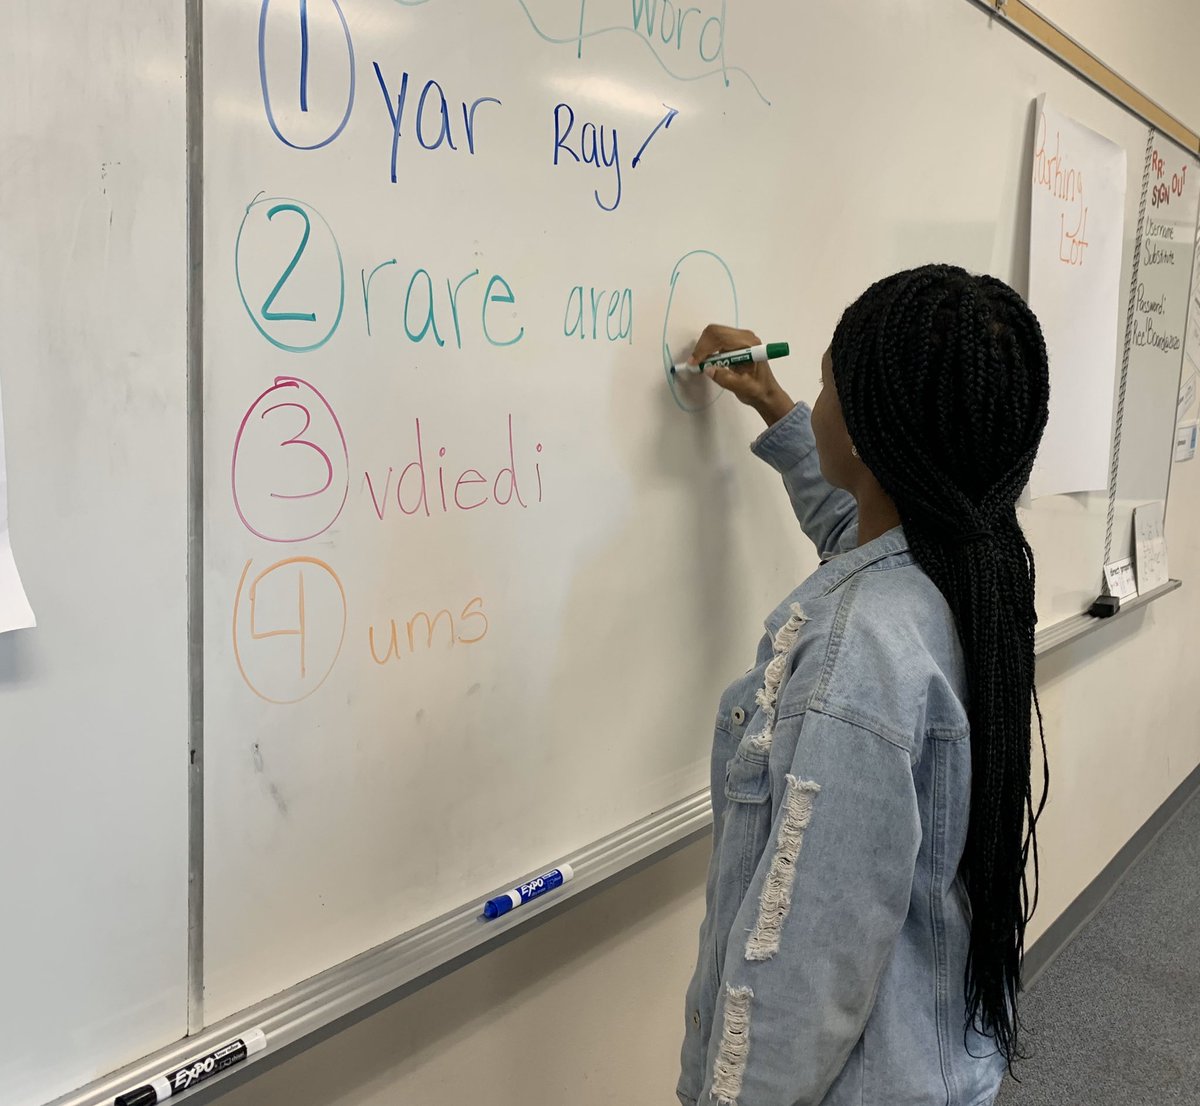 word
1 yar Ray
2 rare area
3 vdiedi
4 ums
EXPO
EXPO
EXPO
Parking
Lot
RR:
SIGN OUT
Username
Substitute
Password: